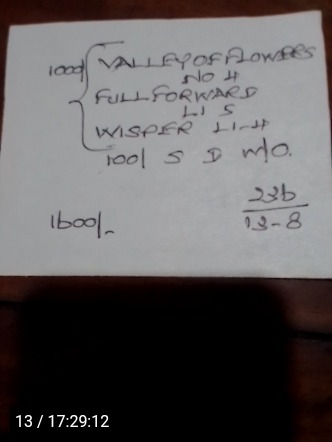 1000/ VALLEY OF FLOWERS
NO 4
FULL FORWARD
LI S
WISPER LI-4
100/ S D M/O.
236
13-8
1600/-
13 / 17:29:12